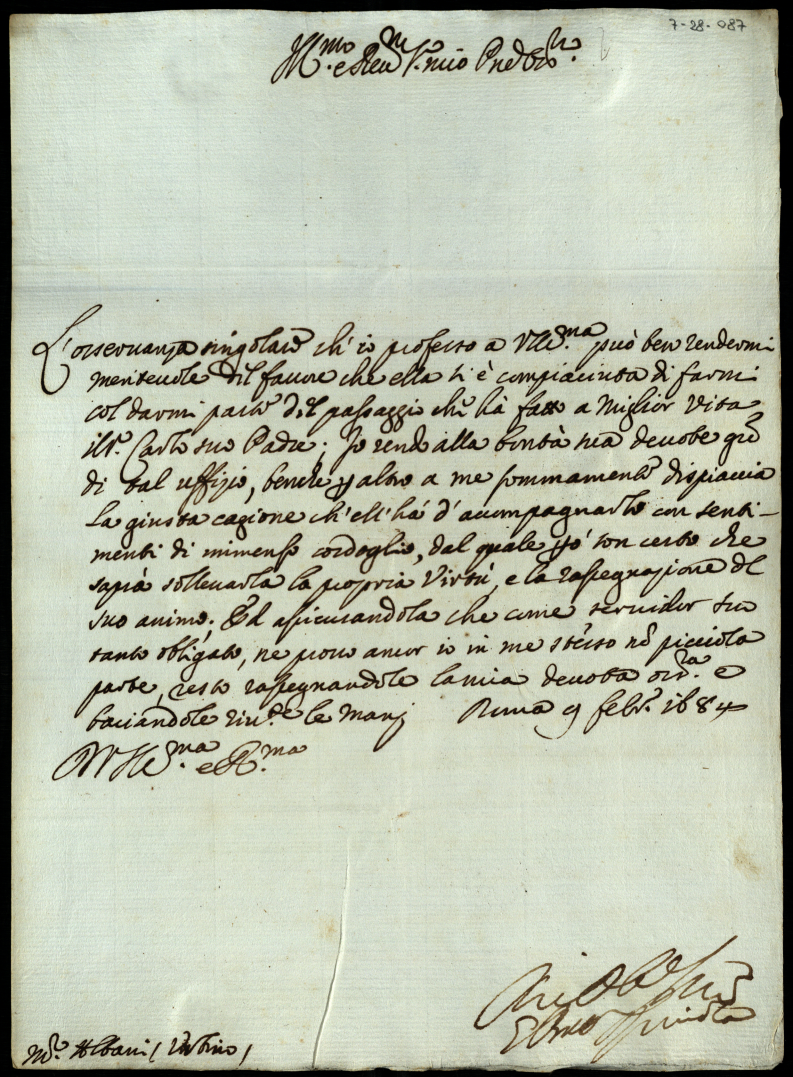 7-28-087
Ill.mo e Reu.mo S.r mio P.ne Oss.mo
L'osseruanza singolare ch'io professo a VSIll.ma può ben rendermi
meriteuole del fauore che ella si è compiaciuta di farmi
col darmi parte del passaggio che hà fatto a Miglior Vita
il Sr. Carlo suo Padre; Io rendo alla bontà sua deuote gre
di tal uffizio, benche p altro a me sommamente dispiaccia
la giusta cagione ch'ell'há d'accompagnarlo con senti-
menti di immenso cordoglio, dal quale pò son certo che
saprà solleuarla la propria Virtù, e la rassegnazione del
suo animo; Ed assicurandola che come seruidor suo
tanto obligato, ne prouo ancor io in me stesso nõ picciola
parte, resto rassegnandole la mia deuota oss.za e
baciandole riu.te le manj Roma 9 febr. 1684
DVSIll.ma e R.ma
M.r Albani (Urbino)